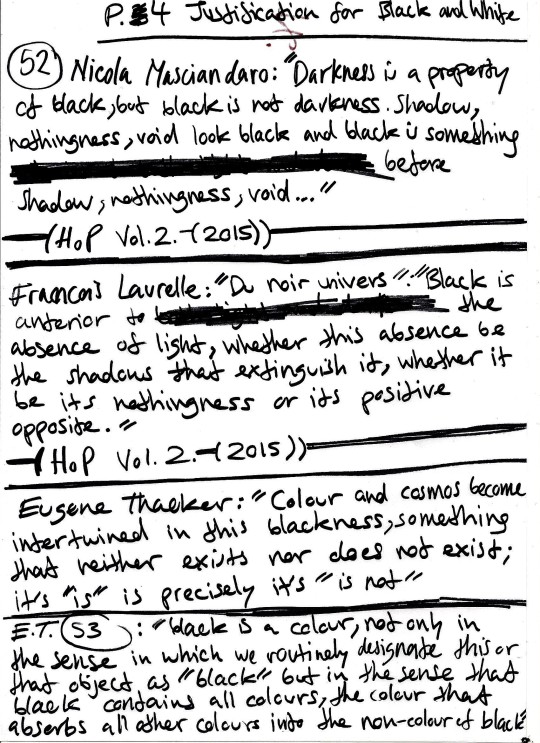 P. 4 Justification for Black and White
52 Nicola Masciandaro: "Darkness is a property
of black, but black is not darkness. Shadow,
nothingness, void look black and black is something
before
shadow, nothingness, void..."
(HoP Vol. 2. - (2015))
Francois Laurelle: "Du noir univers": "Black is
anterior to the
absence of light, whether this absence be
the shadows that extinguish it, whether it
be its nothingness or its positive
opposite."
(HoP Vol. 2. - (2015))
Eugene Thacker: "Colour and cosmos become
intertwined in this blackness, something
that neither exists nor does not exist;
it's "is" is precisely it's "is not"
E.T. 53 : "black is a colour, not only in
the sense in which we routinely designate this or
that object as "black" but in the sense that
black contains all colours, the colour that
absorbs all other colours into the non-colour of black"